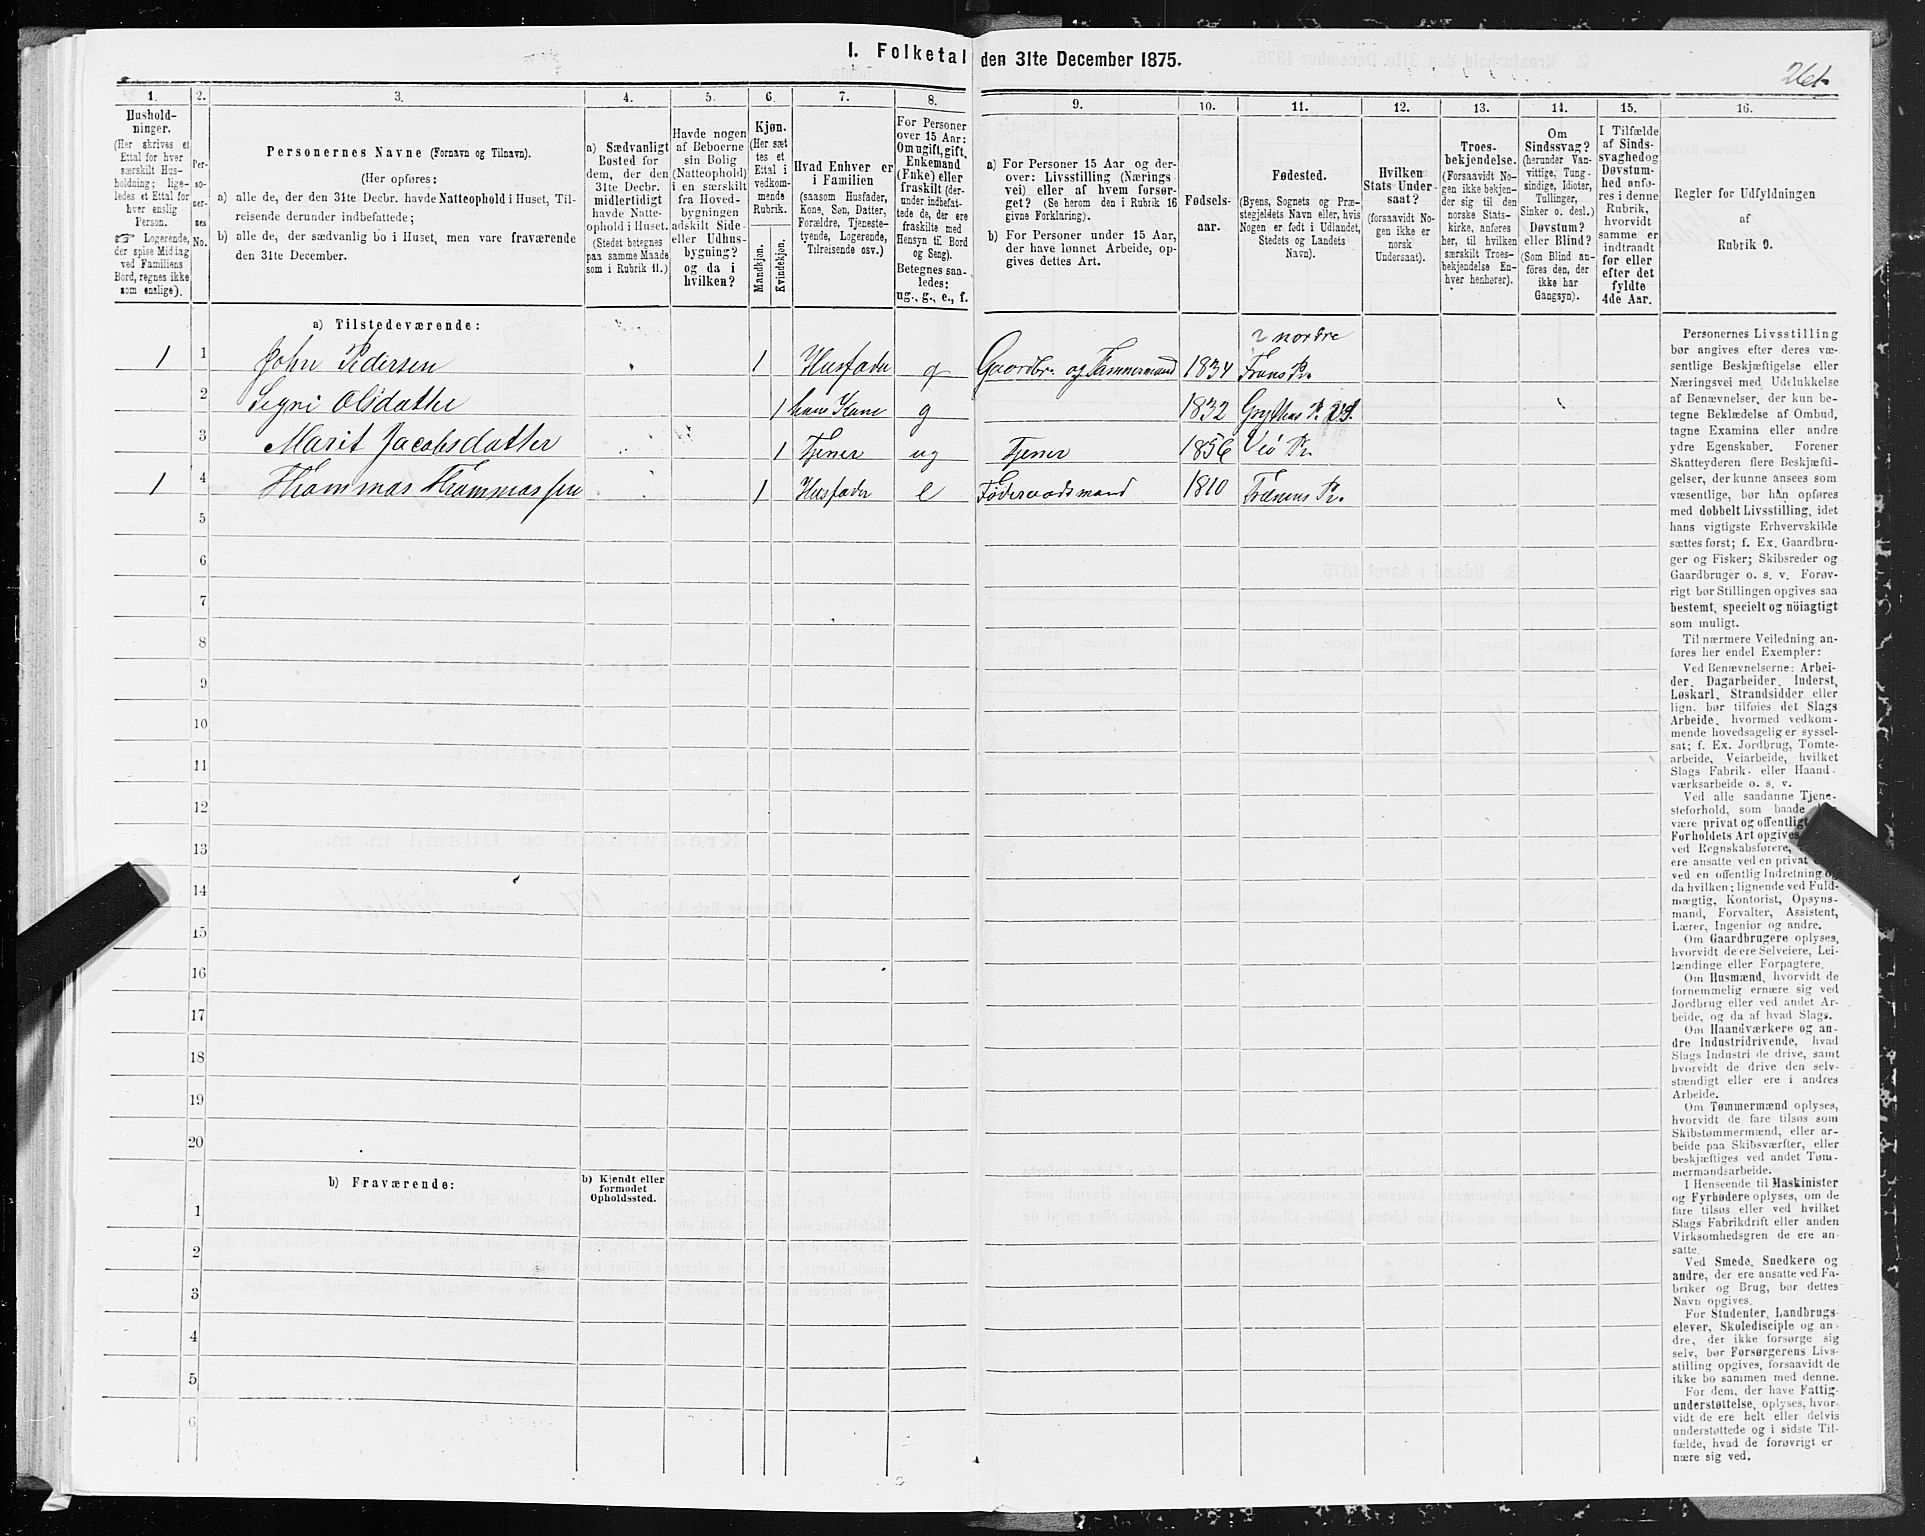 I. Folketal den 31te December 1875.
261
1. 2. 3. 4. 5. 6. 7. 8. 9. 10. 11. 12. 13. 14. 15. 16.
Hushold-
ninger.
(Her skrives et
Ettal for hver
særskilt Hus-
holdning; lige-
ledes et Ettal for
hver enslig
Person.
☞ Logerende,
der spise Middag
ved Familiens
Bord, regnes ikke
som enslige).
Per-
so-
ner-
nes
No.
Personernes Navne (Fornavn og Tilnavn).
(Her opføres:
a) alle de, der den 31te Decbr. havde Natteophold i Huset, Til-
reisende derunder indbefattede;
b) alle de, der sædvanlig bo i Huset, men vare fraværende
den 31te December.
a) Sædvanligt
Bosted for
dem, der den
31te Decbr.
midlertidigt
havde Natte-
ophold i Huset.
(Stedet betegnes
paa samme Maade
som i Rubrik 11.)
Havde nogen
af Beboerne
sin Bolig
(Natteophold)
i en særskilt
fra Hoved-
bygningen
adskilt Side-
eller Udhus-
bygning?
og da i
hvilken?
Kjøn.
(Her sæt-
tes et
Ettal i
vedkom-
mende
Rubrik.
Mandkjøn.
Kvindekjøn.
Hvad Enhver er
i Familien
(saasom Husfader,
Kone, Søn, Datter,
Forældre, Tjeneste-
tyende, Logerende,
Tilreisende osv.)
For Personer
over 15 Aar:
Om ugift, gift,
Enkemand
(Enke) eller
fraskilt (der-
under indbefat-
tede de, der ere
fraskilte med
Hensyn til Bord
og Seng).
Betegnes saa-
ledes:
ug., g., e., f.
a) For Personer 15 Aar og der-
over: Livsstilling (Nærings-
vei) eller af hvem forsør-
get? (Se herom den i Rubrik 16
givne Forklaring).
b) For Personer under 15 Aar,
der have lønnet Arbeide, op-
gives dettes Art.
Fødsels-
aar.
Fødested.
(Byens, Sognets og Præ-
stegjeldets Navn eller, hvis
Nogen er født i Udlandet,
Stedets og Landets
Navn).
Hvilken
Stats Under-
saat?
(forsaavidt No-
gen ikke er
norsk
Undersaat).
Troes-
bekjendelse.
(Forsaavidt No-
gen ikke bekjen-
der sig til den
norske Stats-
kirke, anføres
her, til hvilken
særskilt Troes-
bekjendelse En-
hver henhører).
Om
Sindssvag?
(herunder Van-
vittige, Tung-
sindige, Idioter,
Tullinger,
Sinker o. desl.)
Døvstum?
eller Blind?
(Som Blind an-
føres den, der
ikke har
Gangsyn).
I Tilfælde
af Sinds-
svaghed og
Døvstum-
hed anfø-
res i denne
Rubrik,
hvorvidt
samme er
indtraadt
før eller
efter det
fyldte
4de Aar.
Regler for Udfyldningen
af
Rubrik 9.
a) Tilstedeværende:
2 nordre
1 1 John Pedersen 1 Husfader g Gaardbr. og Tømmermand 1834 Fræns Pr.
2 Segni Olsdatter 1 hans Kone g 1832 Grythes P.
3 Marit Jacobsdatter 1 Tjener ug Tjener 1856 Veø Pr.
1 4 Thommas Thommassen 1 Husfader e Føderaadsmand 1810 Frænens Pr.
5
6
7
8
9
10
11
12
13
14
15
16
17
18
19
20
b) Fraværende:
b) Kjendt eller
formodet
Opholdssted.
1
2
3
4
5
6
Personernes Livsstilling
bør angives efter deres væ-
sentlige Beskjæftigelse eller
Næringsvei med Udelukkelse
af Benævnelser, der kun be-
tegne Beklædelse af Ombud,
tagne Examina eller andre
ydre Egenskaber. Forener
Skatteyderen flere Beskjæfti-
gelser, der kunne ansees som
væsentlige, bør han opføres
med dobbelt Livsstilling, idet
hans vigtigste Erhvervskilde
sættes først; f. Ex. Gaardbru-
ger og Fisker; Skibsreder og
Gaardbruger o. s. v. Forøv-
rigt bør Stillingen opgives saa
bestemt, specielt og nöiagtigt
som muligt.
Til nærmere Veiledning an-
føres her endel Exempler:
Ved Benævnelserne: Arbei-
der, Dagarbeider, Inderst,
Løskarl, Strandsidder eller
lign. bør tilføies det Slags
Arbeide, hvormed vedkom-
mende hovedsagelig er syssel-
sat; f. Ex. Jordbrug, Tomte-
arbeide, Veiarbeide, hvilket
Slags Fabrik- eller Haand-
værksarbeide o. s. v.
Ved alle saadanne Tjene-
steforhold, som baade
være privat og offentligt
Forholdets Art opgives
ved Regnskabsførere,
ere ansatte ved en privat
ved en offentlig Indretning og
da hvilken; lignende ved Fuld-
mægtig, Kontorist, Opsyns-
mand, Forvalter, Assistent,
Lærer, Ingeniør og andre.
Om Gaardbrugere oplyses,
hvorvidt de ere Selveiere, Lei-
lændinge eller Forpagtere.
Om Husmænd, hvorvidt de
fornemmelig ernære sig ved
Jordbrug eller ved andet Ar-
beide, og da af hvad Slags.
Om Haandværkere og an-
dre Industridrivende, hvad
Slags Industri de drive, samt
hvorvidt de drive den selv-
stændigt eller ere i andres
Arbeide.
Om Tømmermænd oplyses,
hvorvidt de fare tilsøs som
Skibstømmermænd, eller ar-
beide paa Skibsværfter, eller
beskjæftiges ved andet Tøm-
mermandsarbeide.
I Henseende til Maskinister
og Fyrbødere oplyses, om de
fare tilsøs eller ved hvilket
Slags Fabrikdrift eller anden
Virksomhedsgren de ere an-
satte.
Ved Smede, Snedkere og
andre, der ere ansatte ved Fa-
briker og Brug, bør dettes
Navn opgives.
For Studenter, Landbrugs-
elever, Skoledisciple og an-
dre, der ikke forsørge sig
selv, bør Forsørgerens Livs-
stilling opgives, forsaavidt de
ikke bo sammen med denne.
For dem, der have Fattig-
understøttelse, oplyses, hvor-
vidt de ere helt eller delvis
understøttede og i sidste Til-
fælde, hvad de forøvrigt er-
nære sig ved.